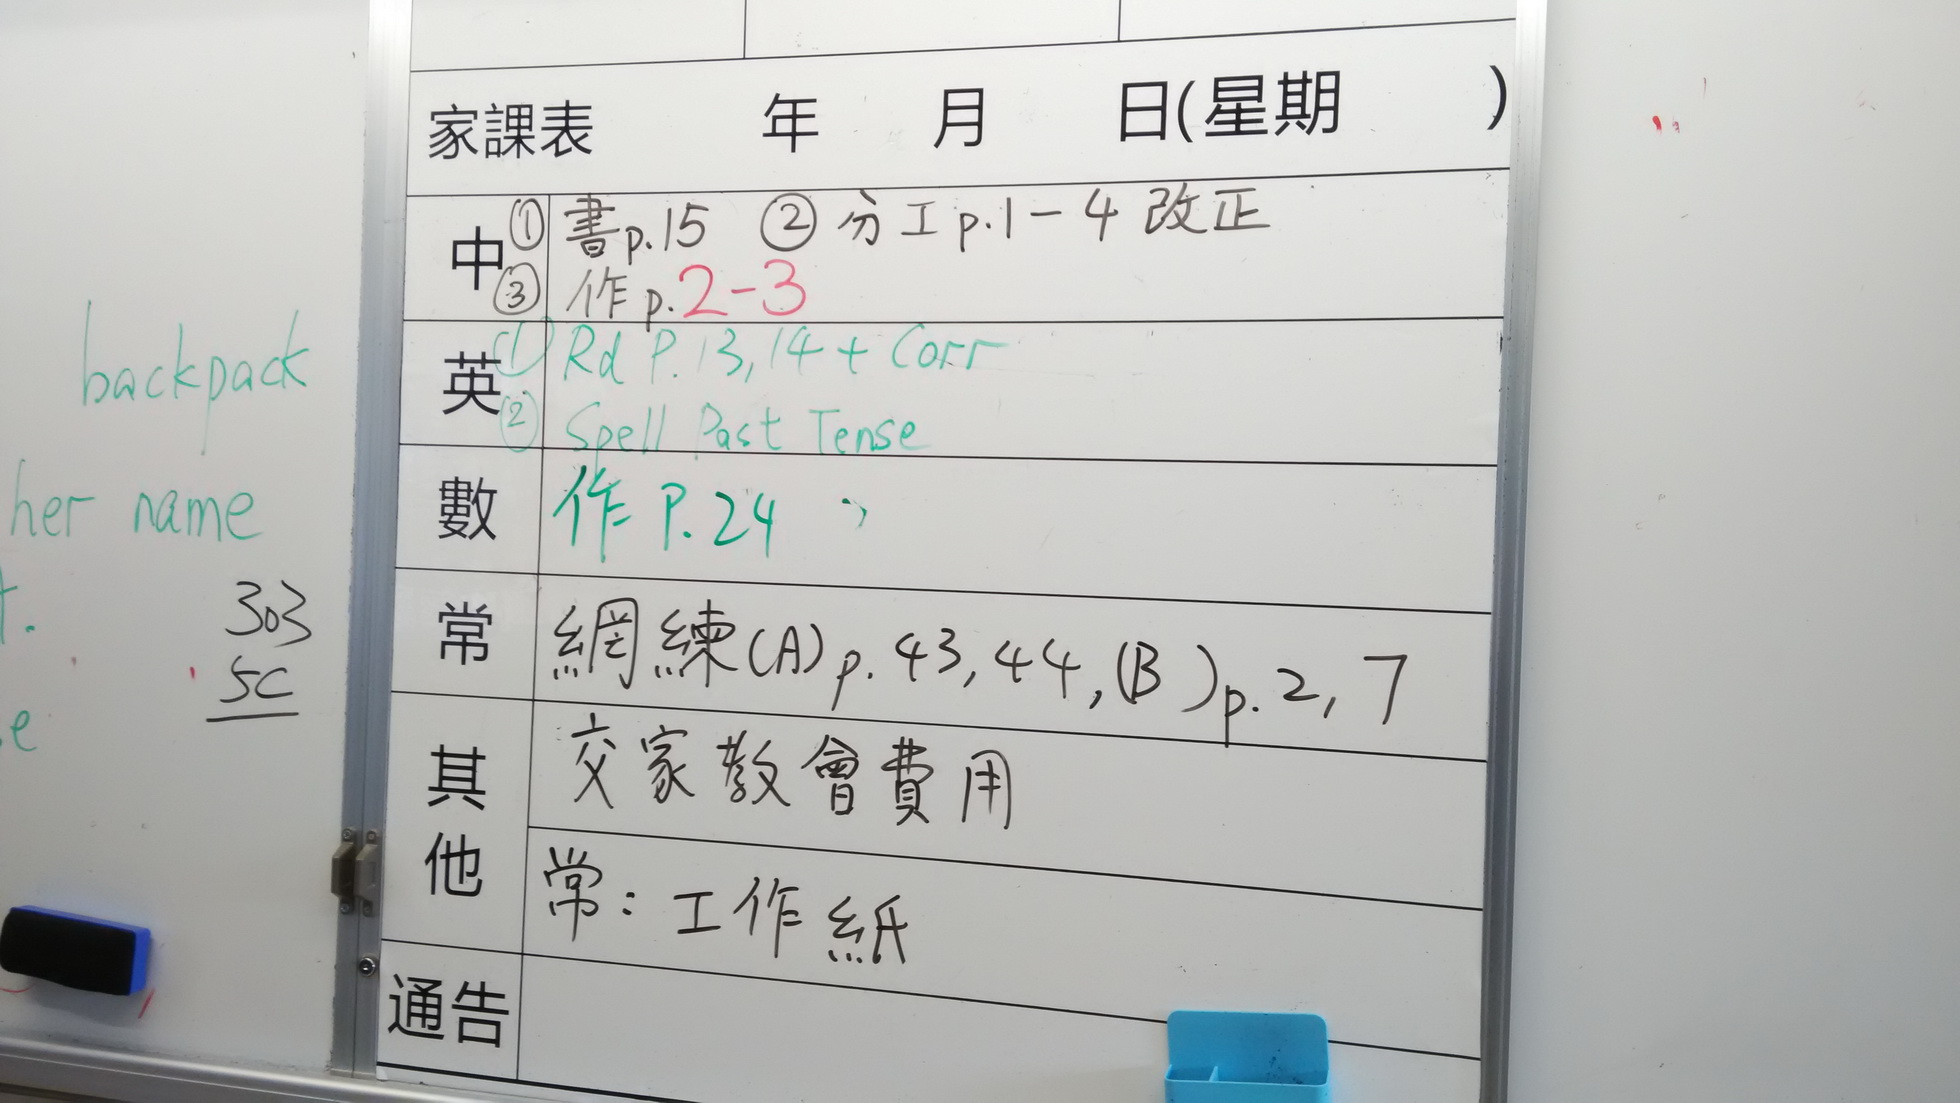 家課表 年 月 日(星期 )
中 ① 書p.15 ② 分工p.1-4改正
③ 作p.2-3
英 ① Rd P.13,14 + Corr
② Spell Past Tense
數 作 P.24
常 網練(A)p.43,44,(B)p.2,7
其他 交家教會費用
常:工作紙
通告
backpack
her name
303
5C